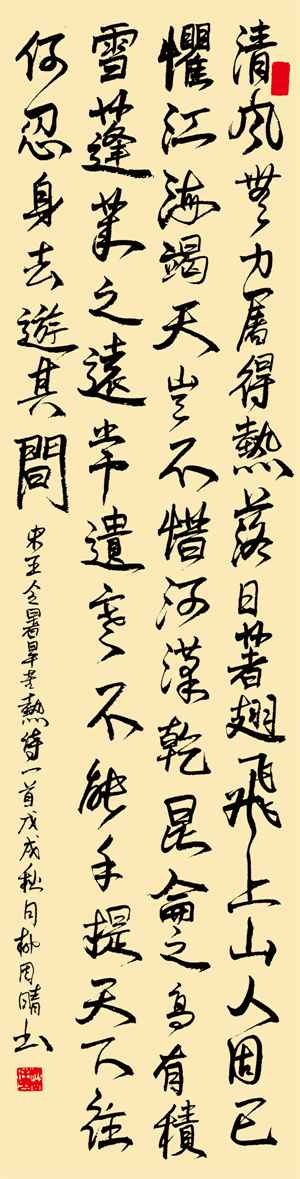 清風無力屠得熱落日著翅飛上山人固已
懼江海竭天豈不惜河漢乾昆侖之高有積
雪蓬萊之遠常遺寒不能手提天下往
何忍身去遊其間
宋王令暑旱苦熱詩一首戊戌秋月周晴书